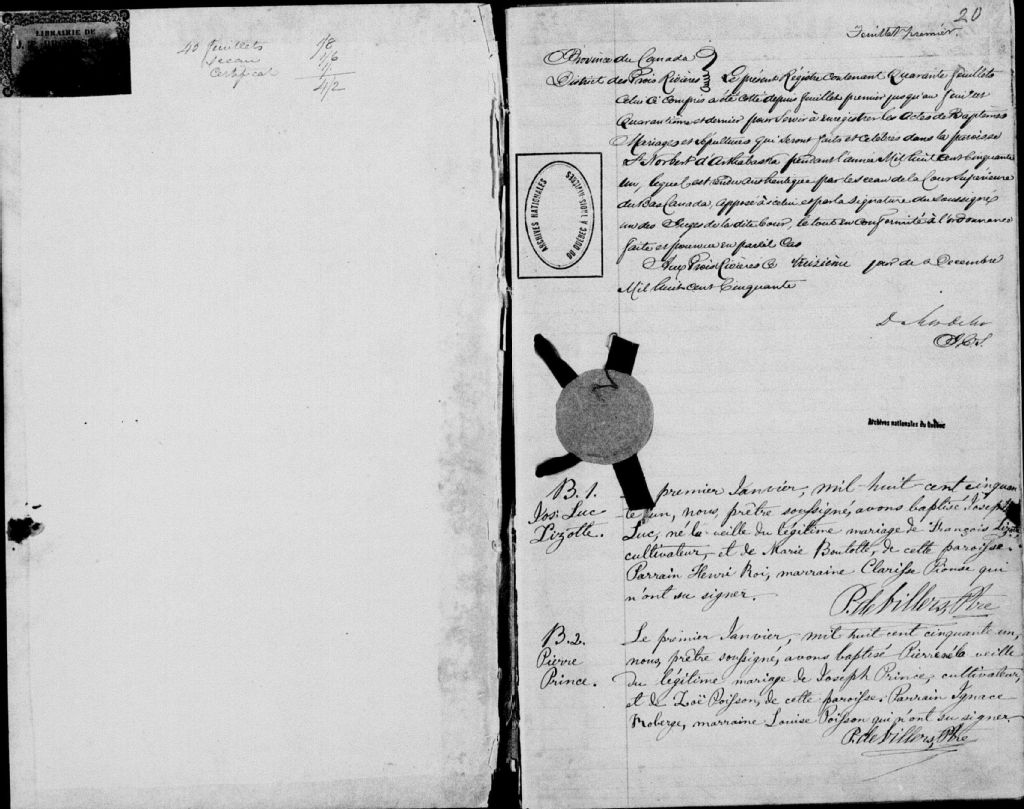 LIBRAIRIE DE
40 feuillets 1/8
Sceau 1/6
Certificat 1/
4/2
20
Feuillet premier.
Province du Canada
District des Trois Rivières Le présent Régistre contenant Quarante feuillets
Celui Ci Compris a été Cotté depuis feuillet premier jusqu'au feuillet
Quarantième et dernier pour Servir à enregistrer les Actes de Baptêmes
Mariages et Sépultures qui Seront faits et Célébrés dans la paroisse
St Norbert d'Arthabaska pendant l'année Mil huit Cent Cinquante
un, lequel est rendu authentique par le sceau de la Cour Supérieure
du Bas Canada, apposé à icelui et par la Signature du Soussigné
un des Juges de la dite Cour, le tout en Conformité à l'ordonnance
faite et pourvue en pareil Cas
Aux Trois Rivières Ce treizième jour de Decembre
Mil huit Cent Cinquante
J.C.S.
ARCHIVES NATIONALES
DU QUÉBEC À TROIS-RIVIÈRES
Archives nationales du Québec
B. 1.
Jos: Luc
Lizotte.
Le premier Janvier, mil-huit cent cinquan
te un, nous, prêtre soussigné, avons baptisé Joseph
Luc, né la veille du légitime mariage de François Lizotte
cultivateur, et de Marie Boutotte, de cette paroisse.
Parrain Henri Roi, marraine Clarisse qui
n'ont su signer.
P. de Villers, Ptre
B. 2.
Pierre
Prince.
Le premier Janvier, mil huit cent cinquante un,
nous, prêtre soussigné, avons baptisé Pierre né la veille
du légitime mariage de Joseph Prince, cultivateur,
et de Zoë Poisson, de cette paroisse. Parrain Ignace
Roberge, marraine Louise Poisson qui n'ont su signer
P. de Villers, Ptre